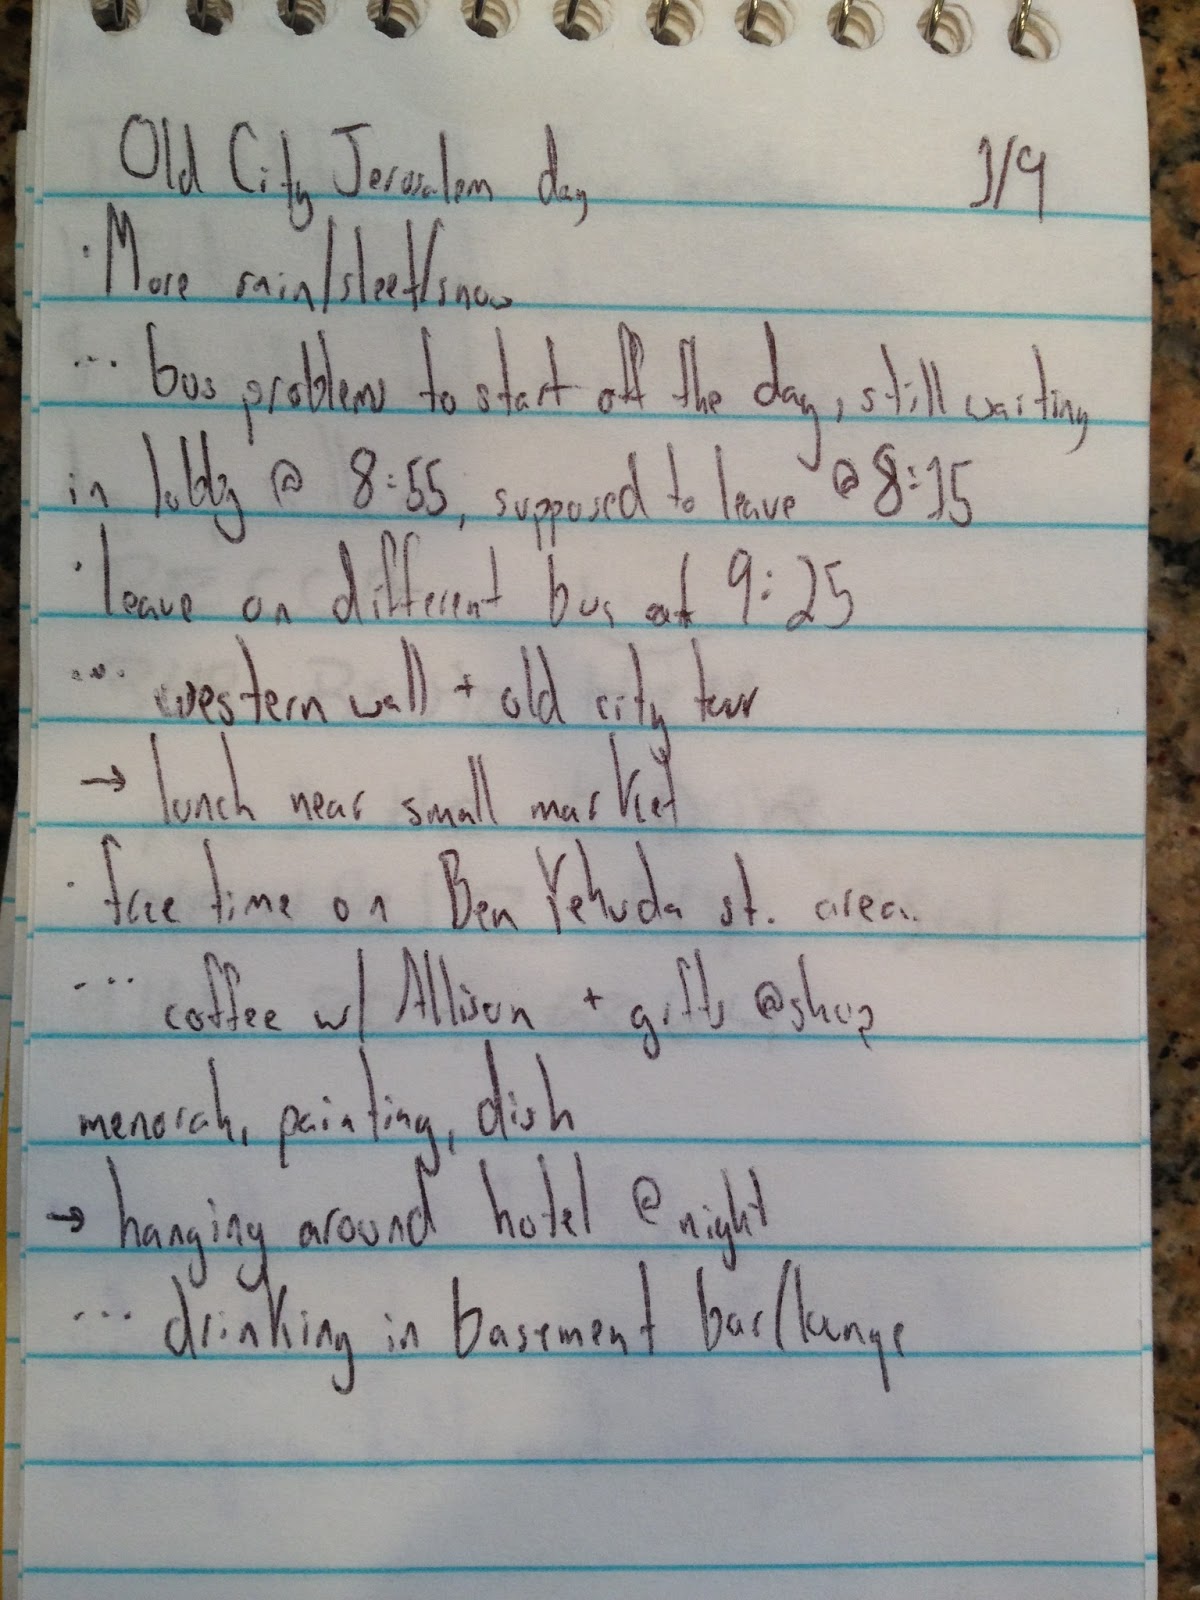 Old City Jerusalem day 1/9
· More rain/sleet/snow
... bus problems to start off the day, still waiting
in lobby @ 8:55, supposed to leave @ 8:15
· leave on different bus at 9:25
... western wall + old city tour
→ lunch near small market
· free time on Ben Yehuda st. area.
... coffee w/ Allison + gifts @ shop
menorah, painting, dish
→ hanging around hotel @ night
... drinking in basement bar/lounge